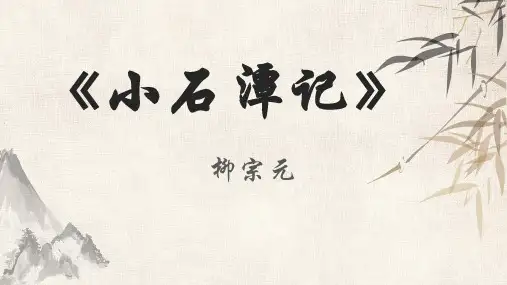 《小石潭记》
柳宗元